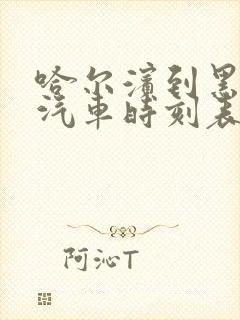 哈尔滨到黑
汽车时刻表
阿沁T